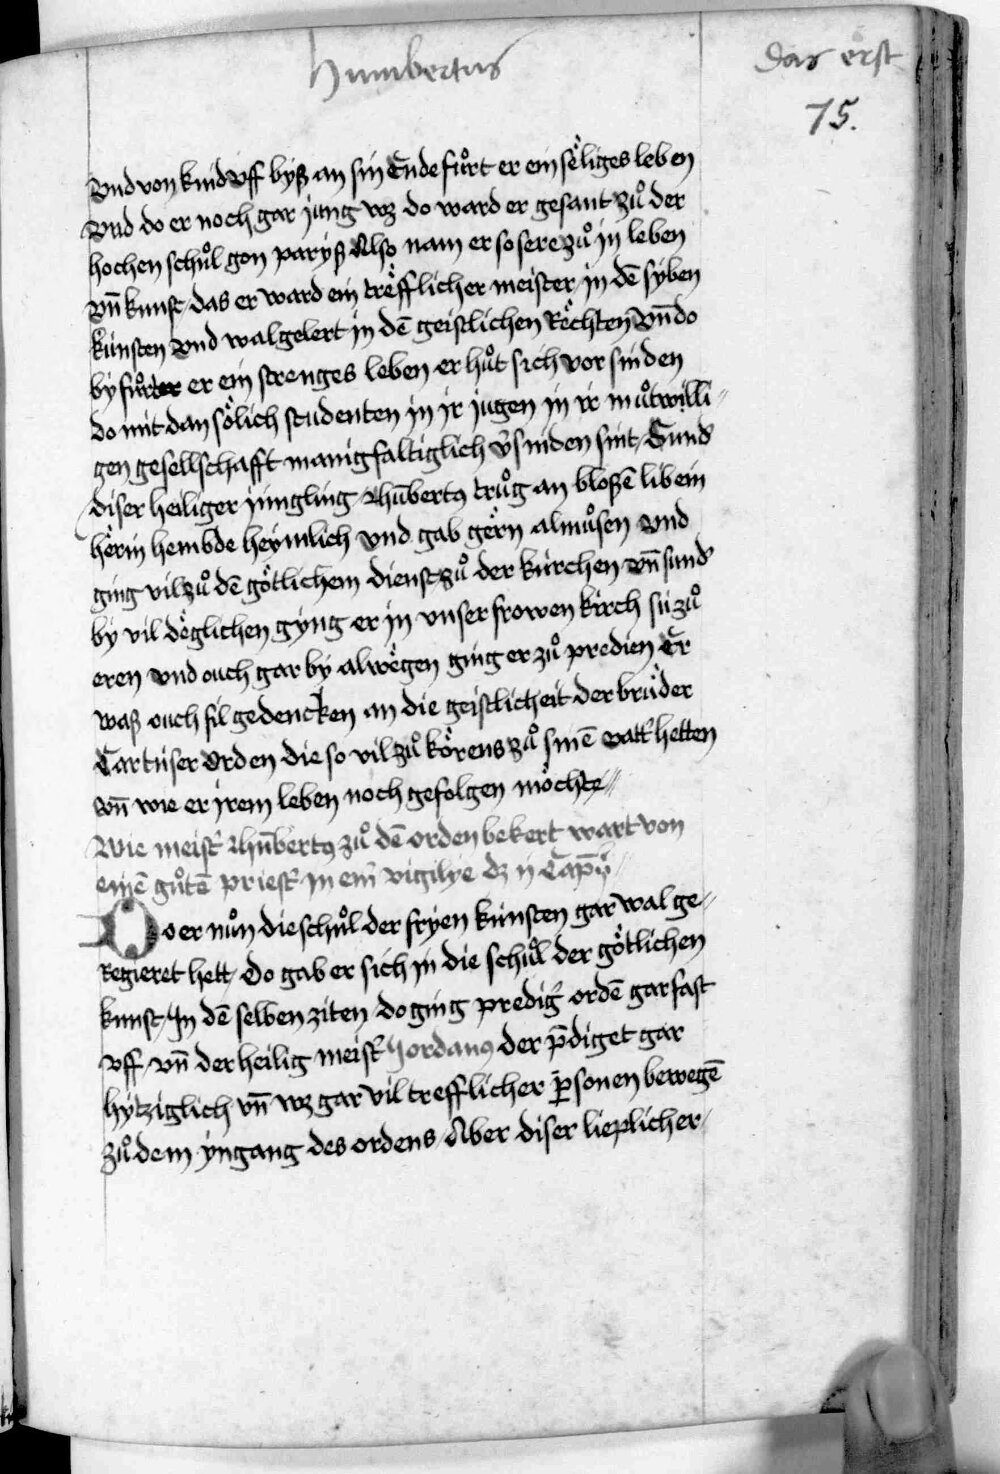 Humbertus
Das erst
75.
Vnd von kind vff byß an sin Ende fůrt er ein sëliges leben
Vnd do er noch gar jung wz do ward er gesant zů der
hochen schůl gon paryß Also nam er so sere zů in leben
vn̄ kunst / das er ward ein trëfflicher meister in dē syben
künsten Vnd wal gelert in dē geistlichen Rëchten Vn̄ do
by fůrter er ein strenges leben er hůt sich vor sünden
do mit dan sölich studenten in ir jugen in ir můtwilli⸗
gen gesellschafft manigfaltiglich v̓sinden sint / Sund̓
diser heiliger jungling Vhūbertꝰ trůg an bloßē lib ein
hërin hembde heymlich vnd gab gërn almůsen vnd
ging vil zů dē götlichem dienst zů der kirchen vn̄ sund̓
by vil dëglichen gyng er in vnser frowen kirch sü zů
eren vnd ouch gar by alwëgen ging er zů predien Er
waß ouch fil gedencken an die geistlicheit der brüder
Cartuser Orden die so vil zů körens zů sinē vatt̓ hetten
vn̄ wie er irem leben noch gefolgen möchte⸗
Wie meist̓ Vhūbertꝰ zů dē orden bekert wart von
einē gůtē priest̓ in ein̓ vigilye dz ij Cap̄
Do er nůn die schůl der fryen künsten gar wal ge⸗
Regieret hett / Do gab er sich in die schůl der götlichen
kunst / In dē selben ziten do ging predig̓ ordē gar fast
vff / vn̄ der heilig meist̓ Jordanꝰ der p̄diget gar
hytziglich vn̄ wz gar vil trefflicher ꝑsonen bewegē
zů dem yngang des ordens / Aber diser lieplicher